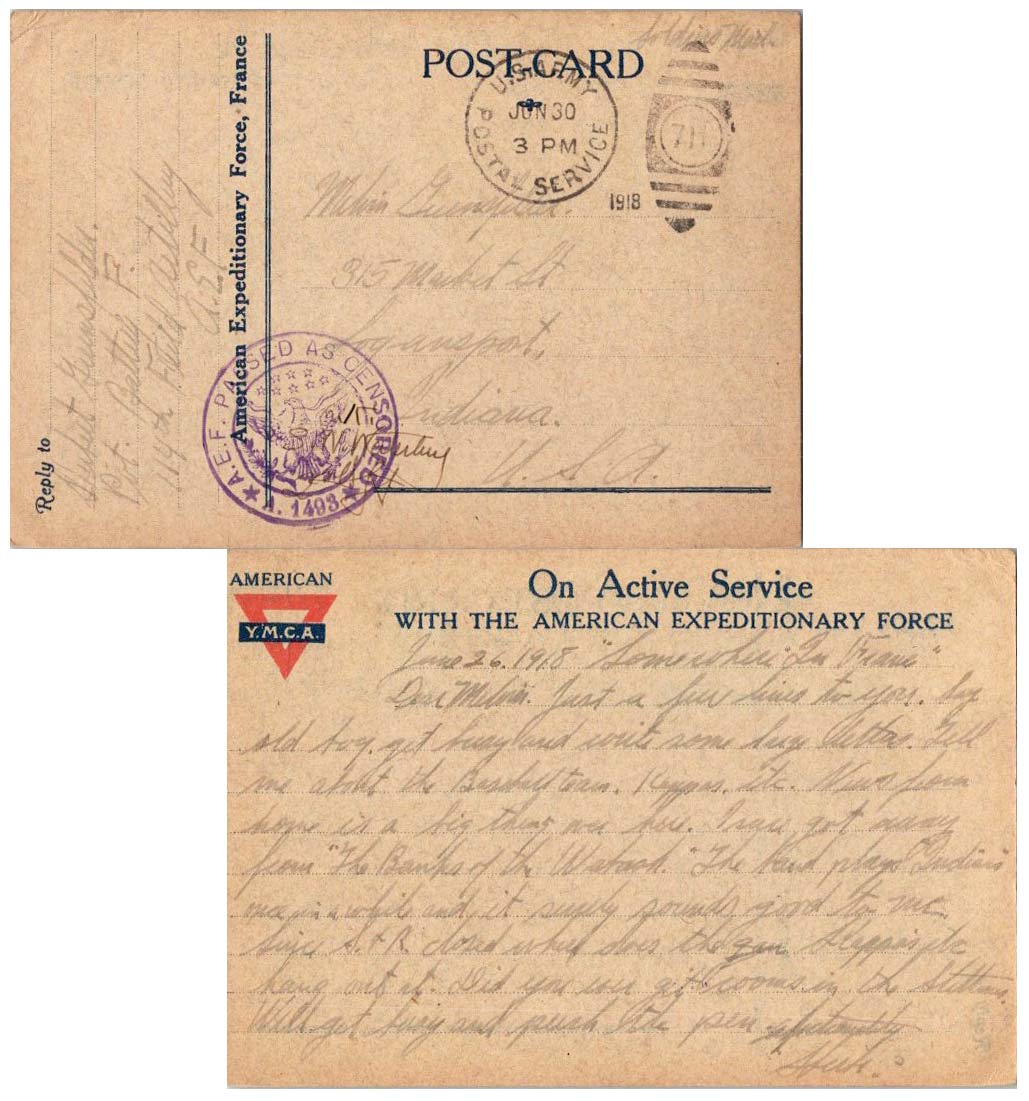 Soldiers Mail
POST-CARD
U.S. ARMY
POSTAL SERVICE
JUN 30
3 PM
1918
711
Melvin
315 Market St
Logansport,
Indiana.
U. S. A.
A.E.F. PASSED AS CENSORED
A. 1493
American Expeditionary Force, France
Reply to
Pvt. Battery F.
119th Field Artillery
A.E.F
AMERICAN
Y.M.C.A.
On Active Service
WITH THE AMERICAN EXPEDITIONARY FORCE
June 26, 1918 "Somewhere In France"
Dear Melvin. Just a few lines to you. Say
old boy, get busy and write some huge letters. Tell
me about the Baseball team, Kappas, etc. News from
home is a big thing over here. I
from "The Banks of the Wabash." The band plays "Indiana"
once in a while and it surely sounds good to me.
Since closed where does the
hang out at. Did you ever get rooms in the
Well get busy and push the pen